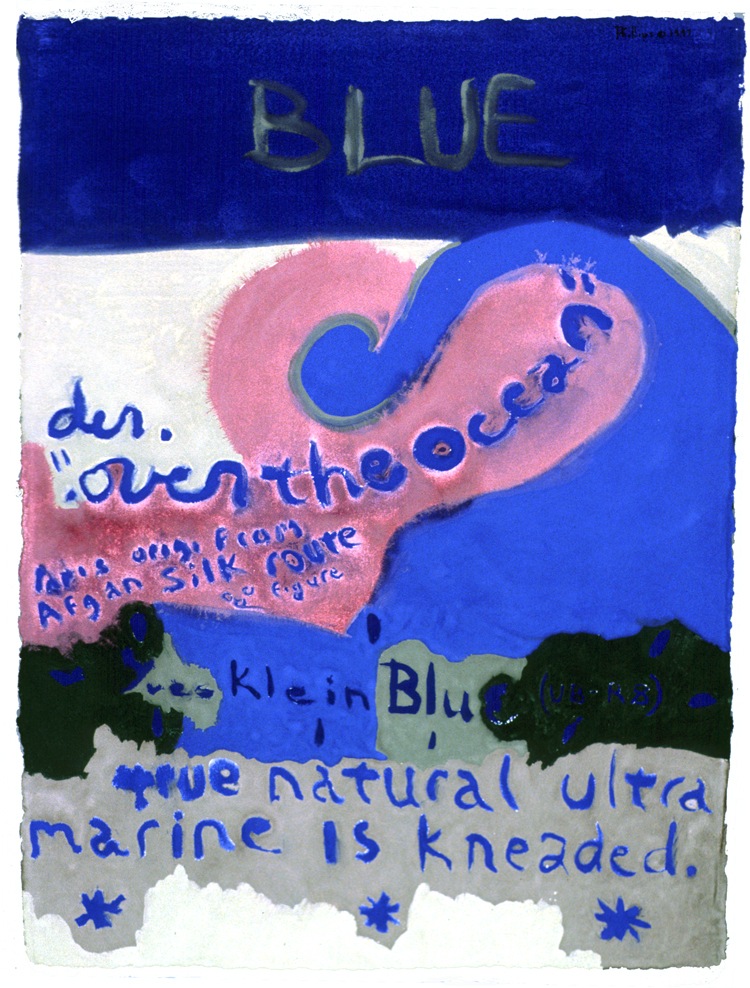 BLUE
der.
"over the ocean"
Paris orig. from
Afgan Silk route
figure
Yves Klein Blue (UB-RB)
true natural ultra
marine is kneaded.
* * *